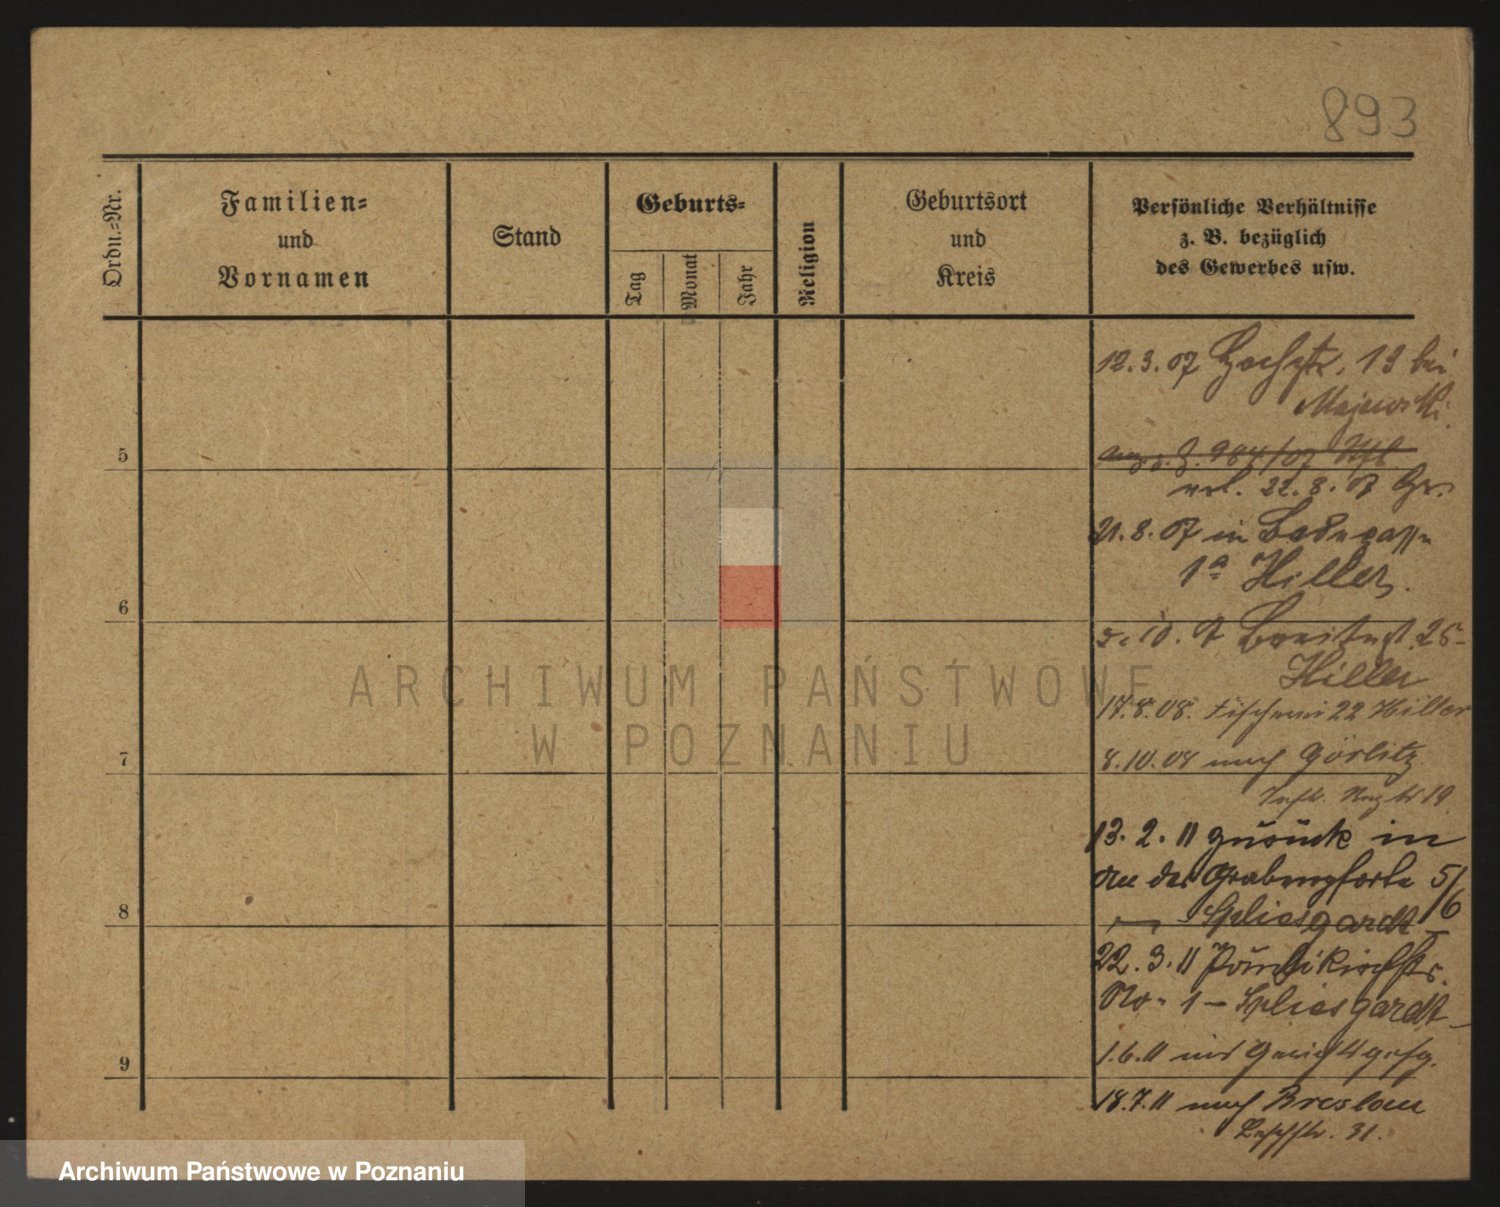 893
Ordn.-Nr.
Familien-
und
Vornamen
Stand
Geburts-
Tag
Monat
Jahr
Religion
Geburtsort
und
Kreis
Persönliche Verhältnisse
z. B. bezüglich
des Gewerbes usw.
12.3.07 19 bei
Majewski.
5
984/07
22.8.07
21.8.07 in
1a Hiller.
6
25
Hiller
17.8.08. Fischerei 22 Hiller
7
8.10.08 nach Görlitz
19
13.2.11 zurück in
An der Grabenpforte 5/6
8
Spliesgardt
22.3.11
No. 1 – Spliesgardt
1.6.11 ins
9
18.7.11 nach Breslau
31.
ARCHIWUM PAŃSTWOWE
W POZNANIU
Archiwum Państwowe w Poznaniu